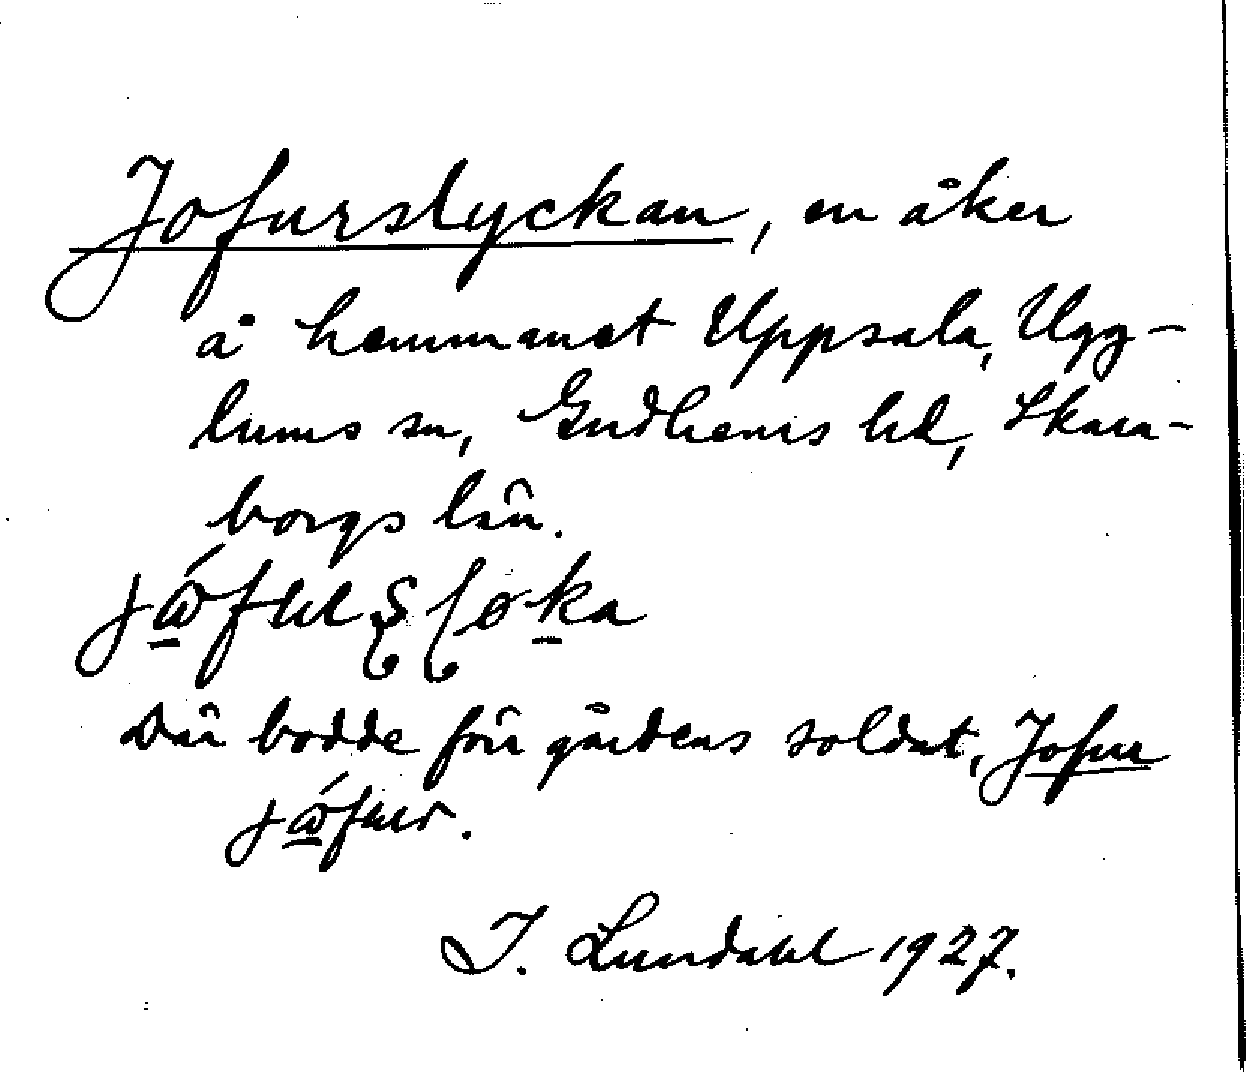 Jofurslyckan, en åker
å hemmanet Uppsala, Ugg-
lums sn, Gudhems hd, Skara-
borgs län.
Där bodde förr gårdens soldat, Jofur
I. Lundahl 1927.